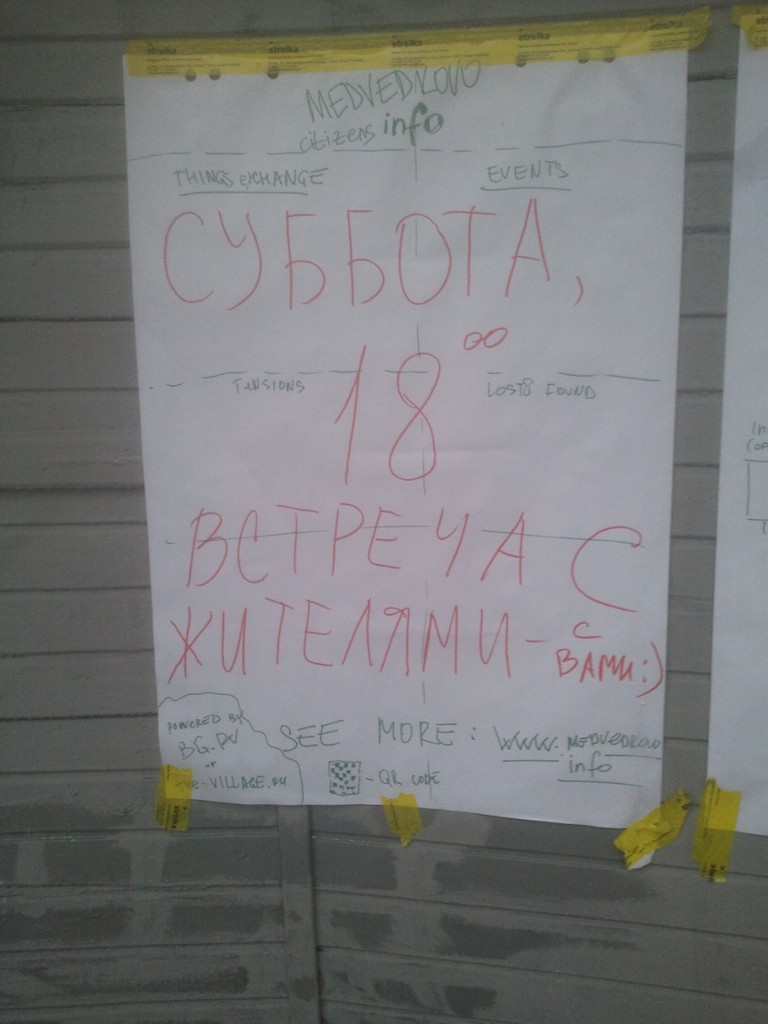 strelka strelka strelka strelka strelka
MEDVEDKOVO
citizens info
THINGS EXCHANGE EVENTS
СУББОТА,
18 00
TENSIONS LOST & FOUND
ВСТРЕЧА С
ЖИТЕЛЯМИ - С
ВАМИ:)
POWERED BY
BG.RU
or
THE-VILLAGE.RU
SEE MORE: WWW.MEDVEDKOVO
info
- QR CODE